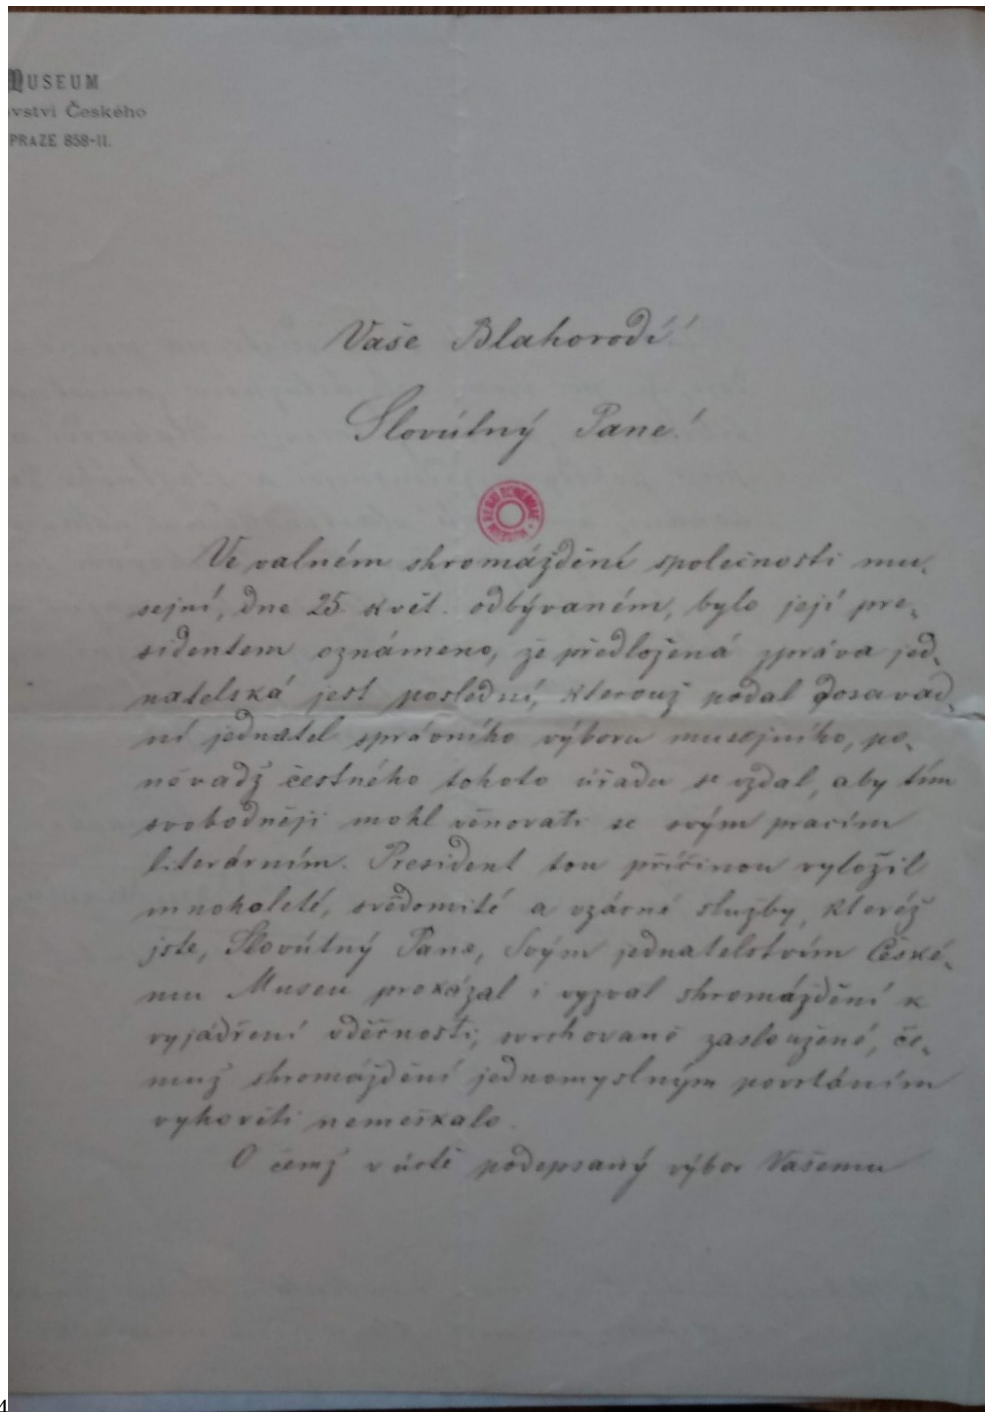 MUSEUM
vství Českého
PRAZE 858-II.
Vaše Blahorodí!
Slovútný Pane!
Ve valném shromáždění společnosti mu-
sejní, dne 25. květ. odbývaném, bylo její pre-
sidentem oznámeno, že předložená zpráva jed-
natelská jest poslední, kterouž podal dosavad-
ní jednatel správního výboru musejního, po-
něvadž čestného tohoto úřadu se vzdal, aby tím
svobodněji mohl věnovati se svým pracím
literárním. President tou příčinou vyložil
mnoholeté, svědomité a vzácné služby, kteréž
jste, Slovútný Pane, Svým jednatelstvím České-
mu Museu prokázal i vyzval shromáždění k
vyjádření vděčnosti, svrchovaně zasloužené, če-
muž shromáždění jednomyslným povstáním
vyhověti nemeškalo.
O čemž v úctě podepsaný výbor Vašemu
4